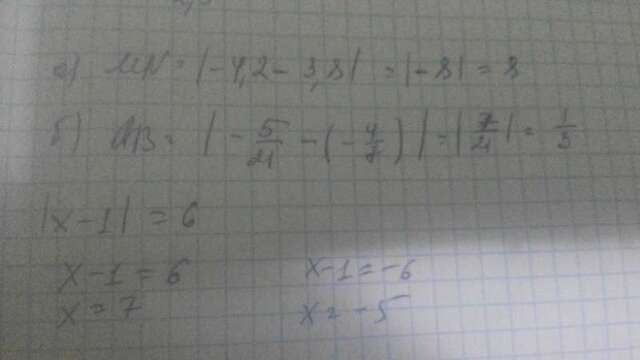 а) MN = |-4,2 - 3,8| = |-8| = 8
б) AB = |-5/21 - (-4/7)| = |7/21| = 1/3
|x-1| = 6
x-1 = 6 x-1 = -6
x = 7 x = -5